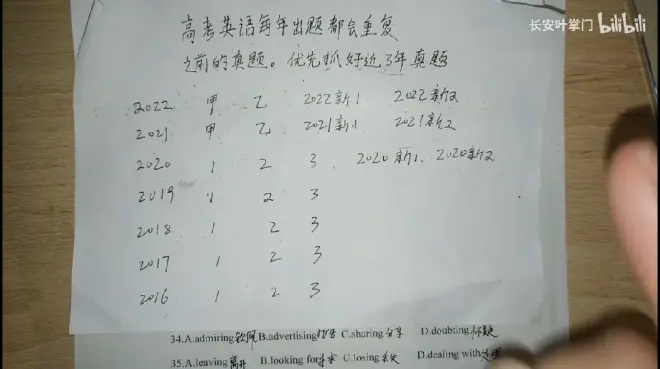 长安叶掌门 bilibili
高考英语每年出题都会重复
之前的真题。优先抓好近3年真题
2022 甲 乙 2022新1 2022新2
2021 甲 乙 2021新1 2021新2
2020 1 2 3 2020新1、2020新2
2019 1 2 3
2018 1 2 3
2017 1 2 3
2016 1 2 3
34.A.admiring钦佩 B.advertising打广告 C.sharing分享 D.doubting怀疑
35.A.leaving离开 B.looking for寻求 C.losing丢失 D.dealing with